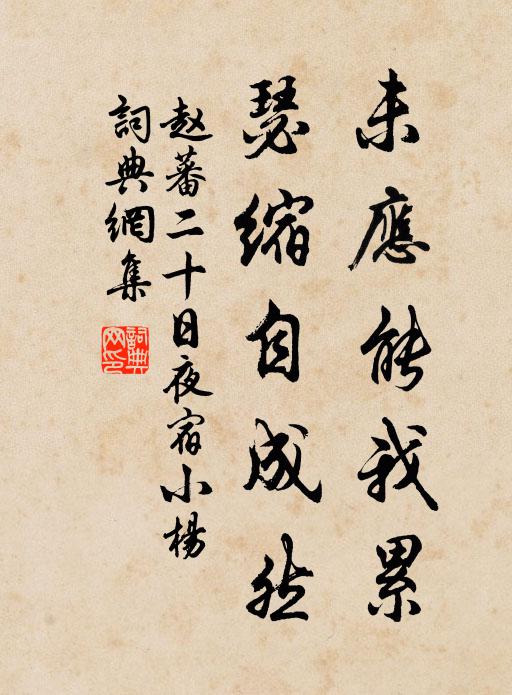 未應能我累
瑟缩自成然
赵蕃二十日夜宿小楊
詞典網集
詞典
网印